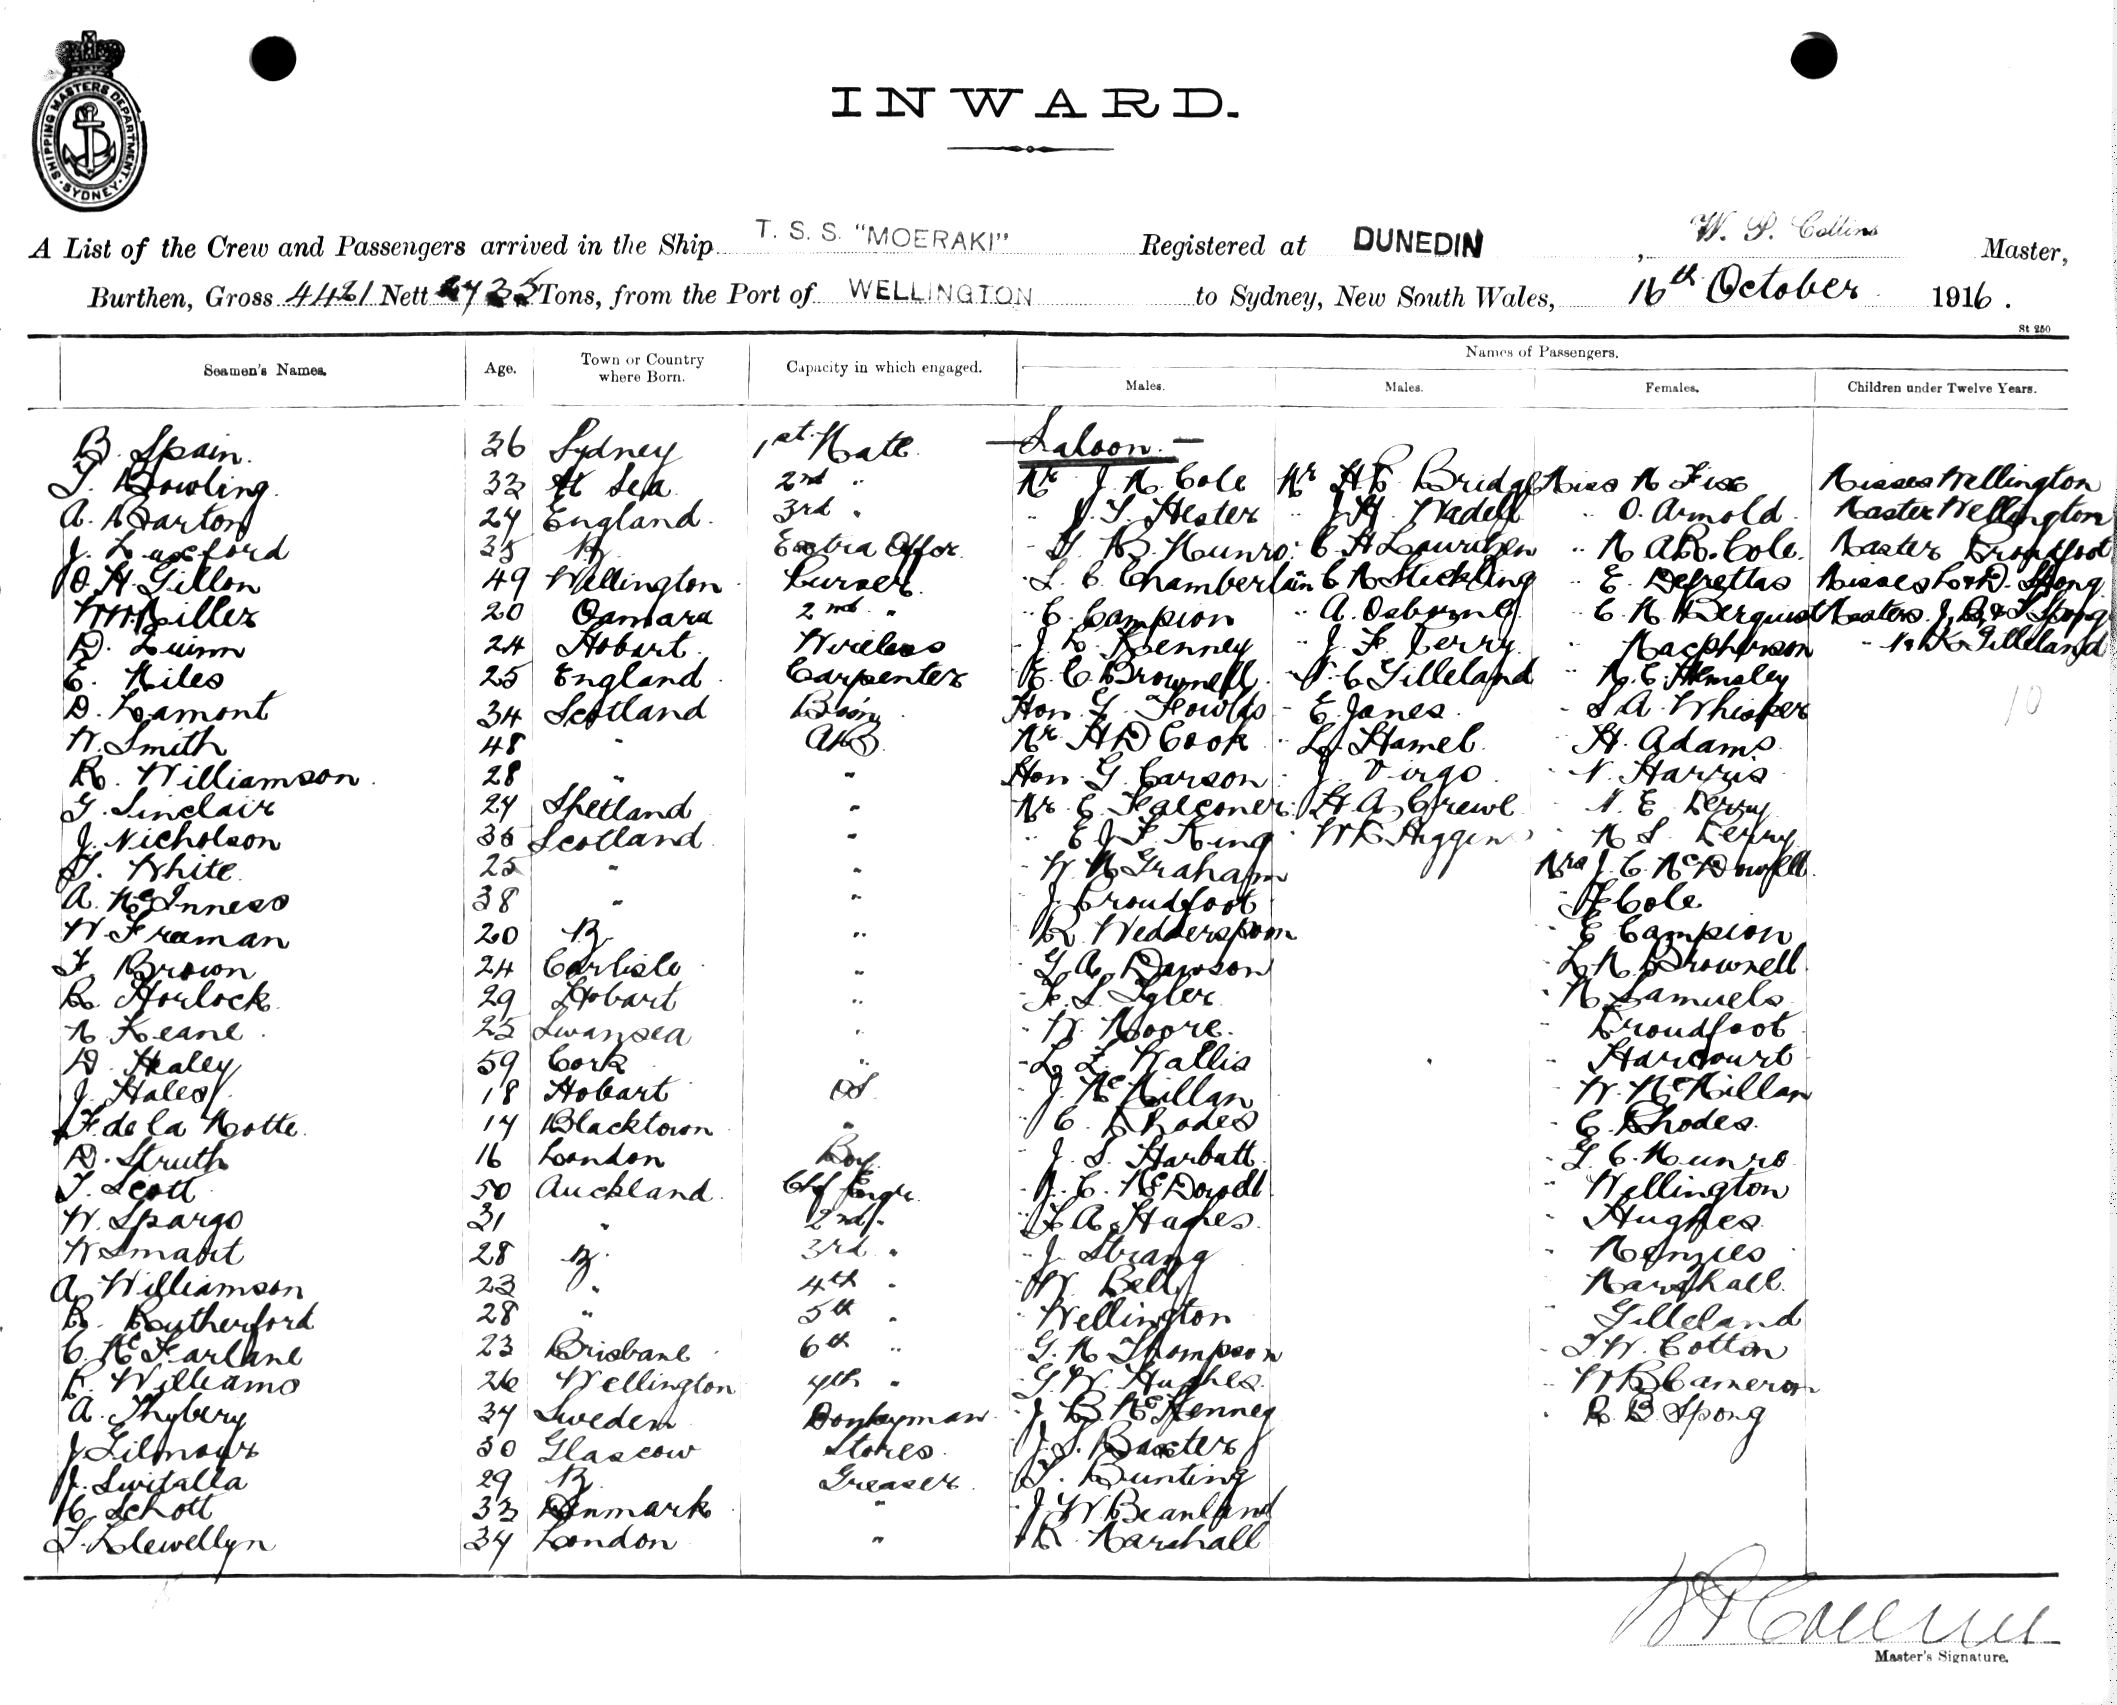 SHIPPING MASTERS DEPARTMENT. SYDNEY.
INWARD.
A List of the Crew and Passengers arrived in the Ship T. S. S. "MOERAKI" Registered at DUNEDIN, W. P. Collins Master,
Burthen, Gross 4421 Nett 2735 Tons, from the Port of WELLINGTON to Sydney, New South Wales, 16th October 1916.
St 250
Seamen's Names. Age. Town or Country where Born. Capacity in which engaged. Names of Passengers.
Males. Males. Females. Children under Twelve Years.
B. Spain. 36 Sydney 1st Mate — Saloon. —
T. Bowling. 33 At Sea 2nd " Mr J. M. Cole Mr H. B. Bridge Miss M Fix Misses Wellington
A. Barton 27 England. 3rd " " J. T. Hester " J H. Wadell " O. Arnold. Master Wellington
J. Luxford 35 " Extra Offcr. " G. B. Munro. " C H Lauridsen " M A R. Cole. Master Proudfoot
O. H. Gillon 49 Wellington Purser. " L. C. Chamberlain " C M Stickling " E. Defrettas Misses Spong
W Miller 20 Oamaru 2nd " " C. Campion " A. Osborne " C. M Berquist Masters J. Spong
D. Quinn 24 Hobart. Wireless " J. L. Kenney " J. F. Perry " Macpherson " Gilleland
E. Miles 25 England. Carpenter " E. C. Brownell " C Gilleland " M. E. Hemsley
D. Lamont 34 Scotland Bosn Hon. G. Fowlds " E. Janes. " S A. Whisker 10
W. Smith 48 " AB. Mr H D Cook " L. Hamel. " H. Adams.
R. Williamson. 28 " " Hon. G. Carson " J. Virgo " N. Harris
G. Sinclair 27 Shetland " Mr. C. Falconer " H A. Crewe " N. E Perry
J. Nicholson 36 Scotland " " E J. F. King " W R Higgins " M S. Perry
T. White. 25 " " " W M Graham Mrs J. C. McDowell.
A. McInness 38 " " " J. Proudfoot " F Cole
W Freeman 20 " " R Wedderspoon " E Campion
F. Brown 24 Carlisle " " G. A. Dawson " L M Brownell
R. Horlock. 29 Hobart " " F. S. Tyler " M Samuels.
M Keane. 25 Swansea " " W. Moore. " Proudfoot
D. Healey 59 Cork " " L. L. Wallis " Harcourt
J. Hales 18 Hobart OS. " J. McMillan " W. McMillan
F. de la Motte. 17 Blacktown " " C. Rhodes " C. Rhodes.
D. Struth 16 London Boy " J. S. Harbutt " G. C. Munro
T. Scott 50 Auckland Chf Engr. " J. C. McDowell " Wellington
W. Spargo 31 " 2nd " " F. A. Hames. " Hughes
W Smart 28 3rd " " J. Strang " Menzies
A. Williamson 23 " 4th " " W. Bell " Marshall.
R. Rutherford 28 " 5th " " Wellington " Gilleland
C. McFarlane 23 Brisbane 6th " " G. M Thompson " J W. Cotton
R. Williams 26 Wellington 7th " " G. W. Hughes. " W B Cameron
A. Thybery 37 Sweden Donkeyman " J. B. McKenney " R. B. Spong
J Gilmour 30 Glascow Stores. " J. S. Baxter
J. Switalla 29 Greaser. " T. Bunting
C. Schott 33 Denmark " " J. W Beanland
T. Llewellyn 37 London " " R. Marshall
Master's Signature.